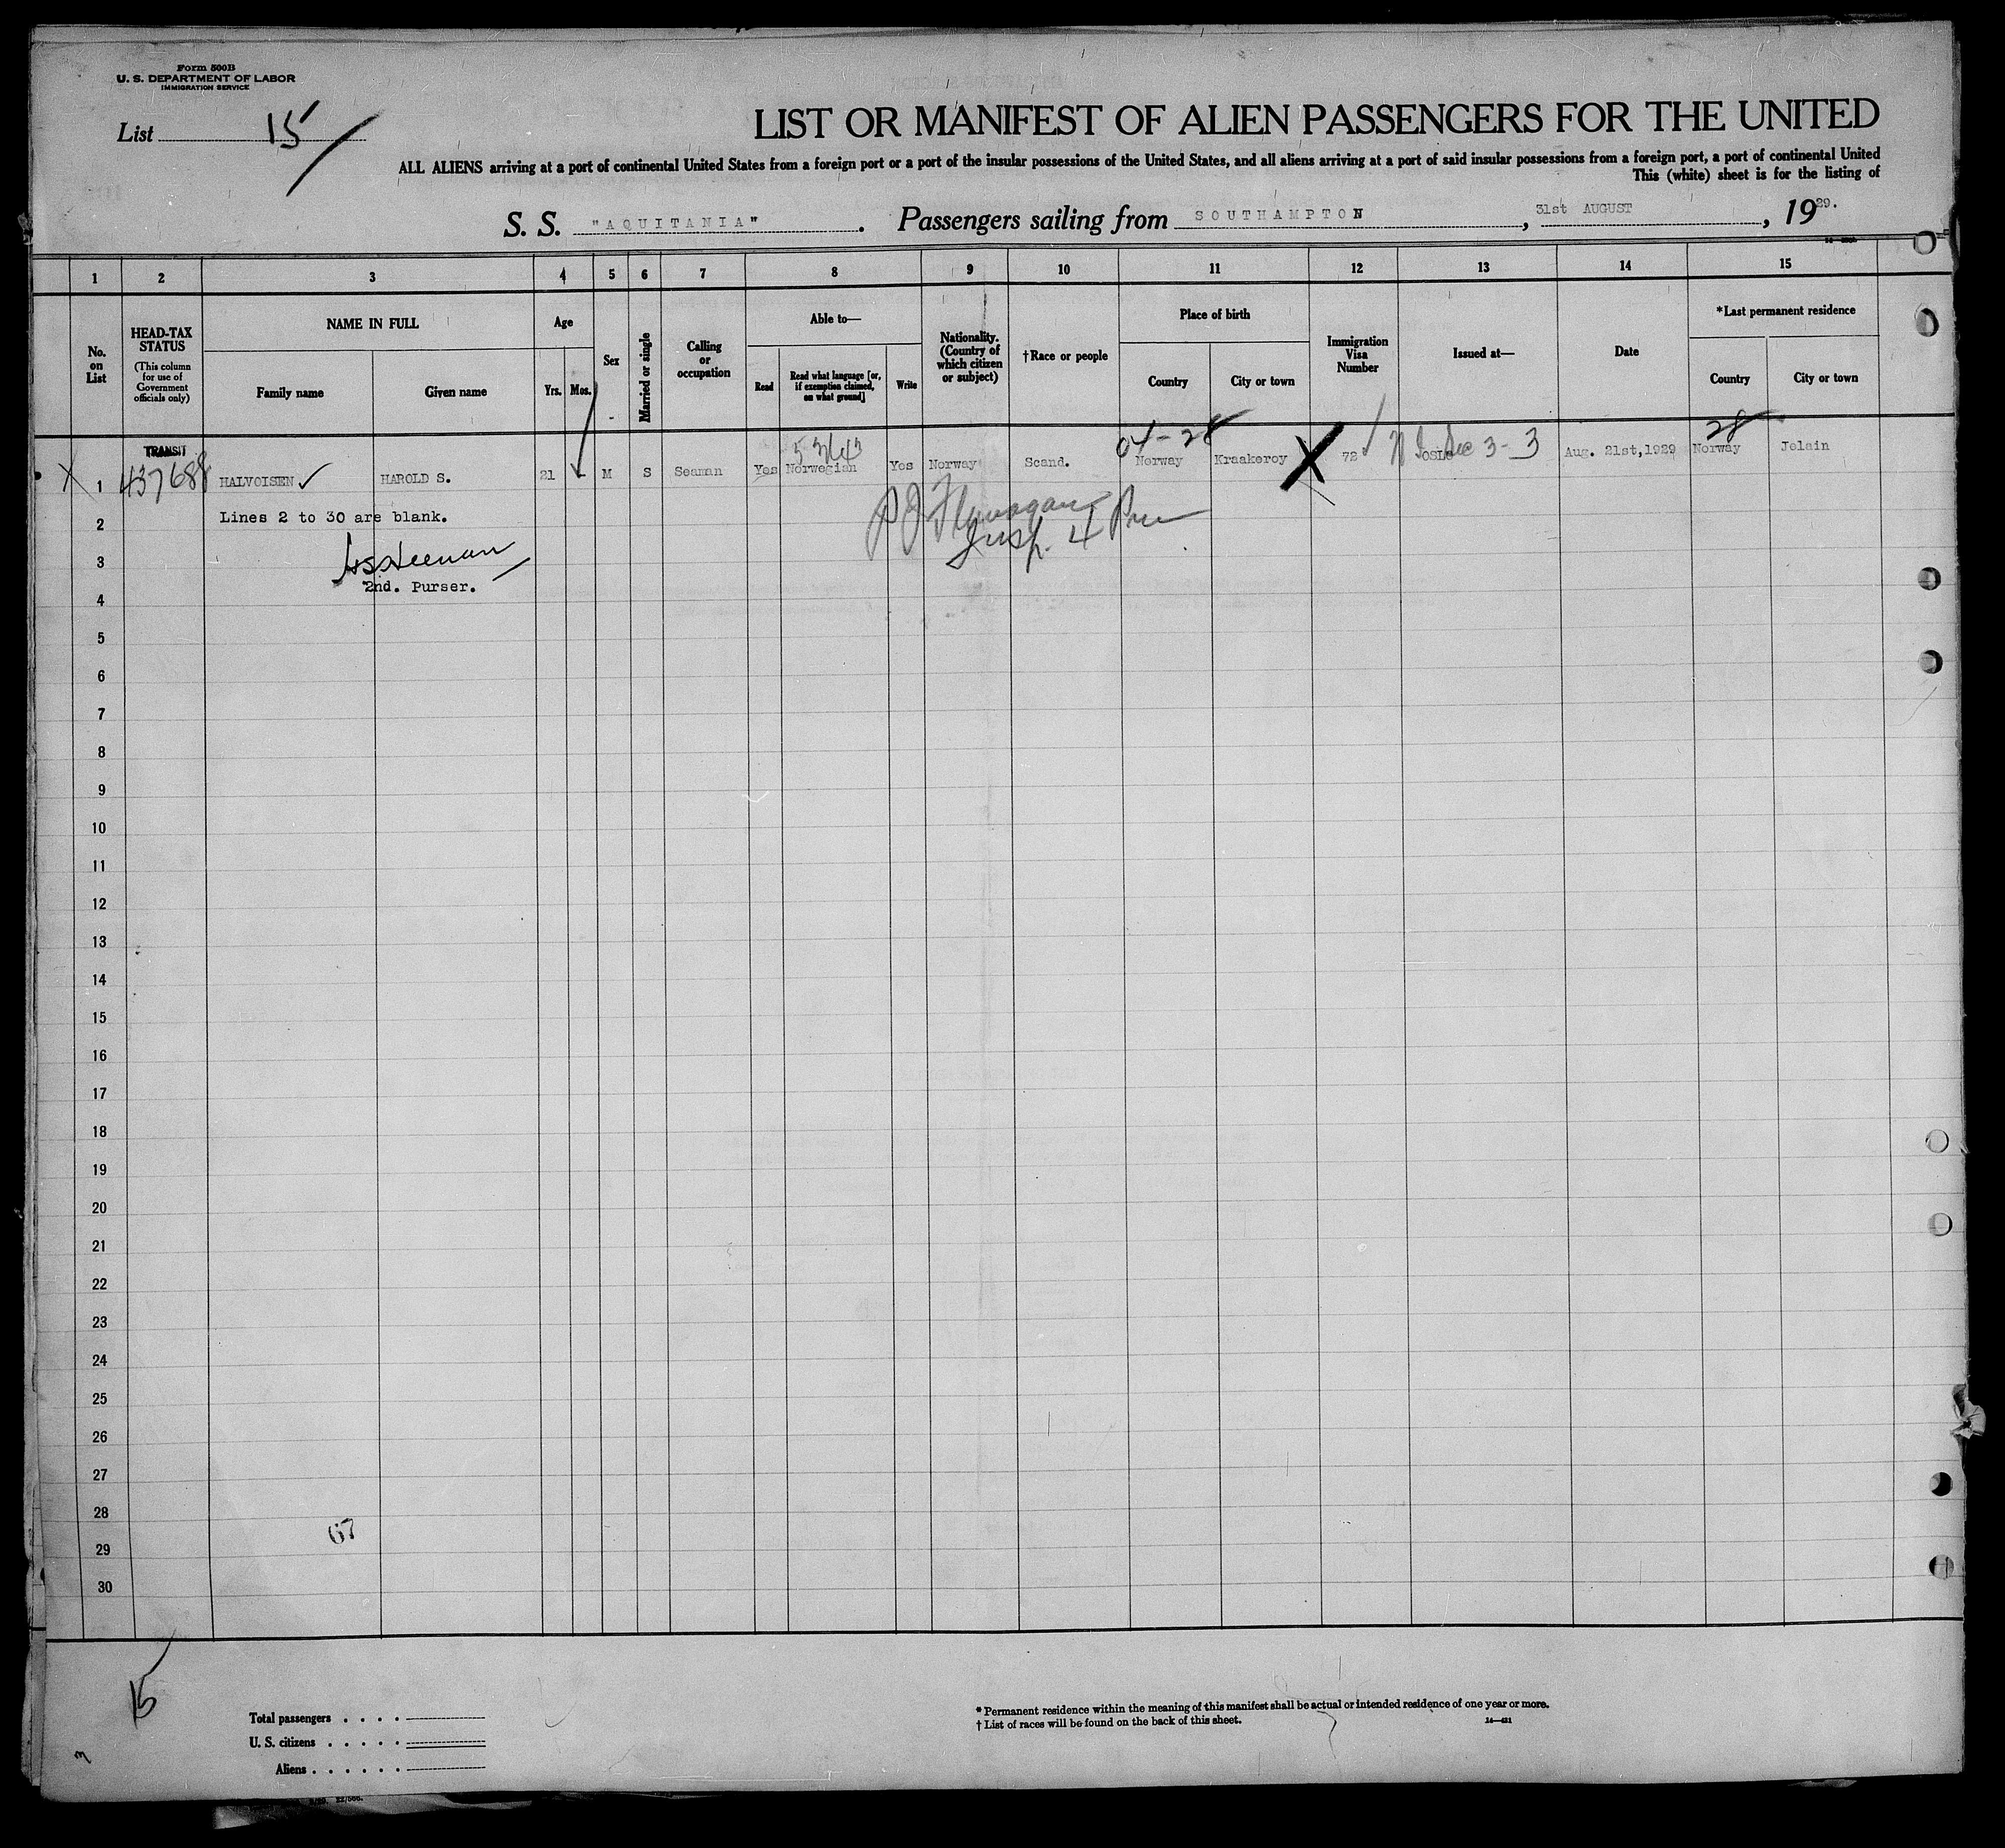 Form 500B
U. S. DEPARTMENT OF LABOR
IMMIGRATION SERVICE
List 15
LIST OR MANIFEST OF ALIEN PASSENGERS FOR THE UNITED
ALL ALIENS arriving at a port of continental United States from a foreign port or a port of the insular possessions of the United States, and all aliens arriving at a port of said insular possessions from a foreign port, a port of continental United
This (white) sheet is for the listing of
S. S. "AQUITANIA". Passengers sailing from SOUTHAMPTON, 31st AUGUST, 1929.
1 2 3 4 5 6 7 8 9 10 11 12 13 14 15
No. on List
HEAD-TAX STATUS
(This column for use of Government officials only)
NAME IN FULL
Family name
Given name
Age
Yrs.
Mos.
Sex
Married or single
Calling or occupation
Able to—
Read
Read what language [or, if exemption claimed, on what ground]
Write
Nationality. (Country of which citizen or subject)
†Race or people
Place of birth
Country
City or town
Immigration Visa Number
Issued at—
Date
*Last permanent residence
Country
City or town
04-28
28
TRANSIT
437688
1 HALVOISEN HAROLD S. 21 M S Seaman Yes Norwegian Yes Norway Scand. Norway Kraakeroy 72 OSLO Sec 3-3 Aug. 21st,1929 Norway Jelain
2 Lines 2 to 30 are blank.
Flanagan
Insp.
3
2nd. Purser.
4
5
6
7
8
9
10
11
12
13
14
15
16
17
18
19
20
21
22
23
24
25
26
27
28
67
29
30
15
Total passengers . . . .
U. S. citizens . . . . .
Aliens . . . . . .
* Permanent residence within the meaning of this manifest shall be actual or intended residence of one year or more.
† List of races will be found on the back of this sheet.
14—431